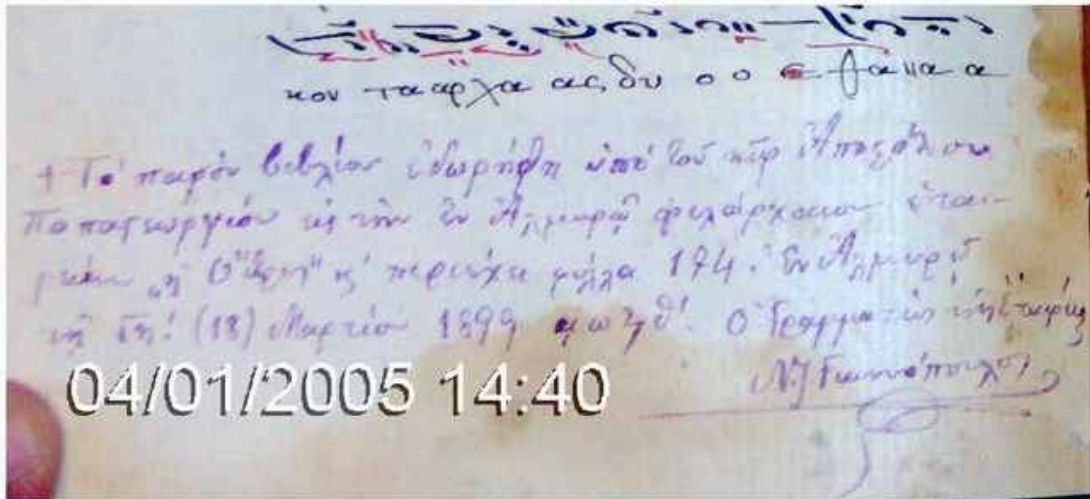 κου τα αρχα ας δυ ο ο ε θα να α
+ Τὸ παρὸν βιβλίον ἐδωρήθη ὑπὸ τοῦ κὺρ Ἀποστόλου
Παπαγεωργίου εἰς τὴν ἐν Ἁλμυρῷ φιλάρχαιον ἑται-
ρείαν „ἡ Ὄθρυς" κ' περιέχει φύλλα 174. Ἐν Ἁλμυρῷ
τῇ ιη! (18) Μαρτίου 1899 αωϟθ'. Ὁ Γραμματεὺς τῆς Ἑταιρίας
Ν. Ι. Γιαννόπουλος
04/01/2005 14:40